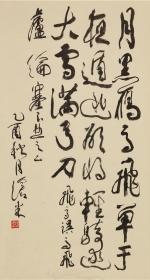 月黑雁高飛單于
夜遁逃欲將輕騎逐
大雪滿弓刀 飛高誤高飛
盧綸塞下曲之
乙酉秋月